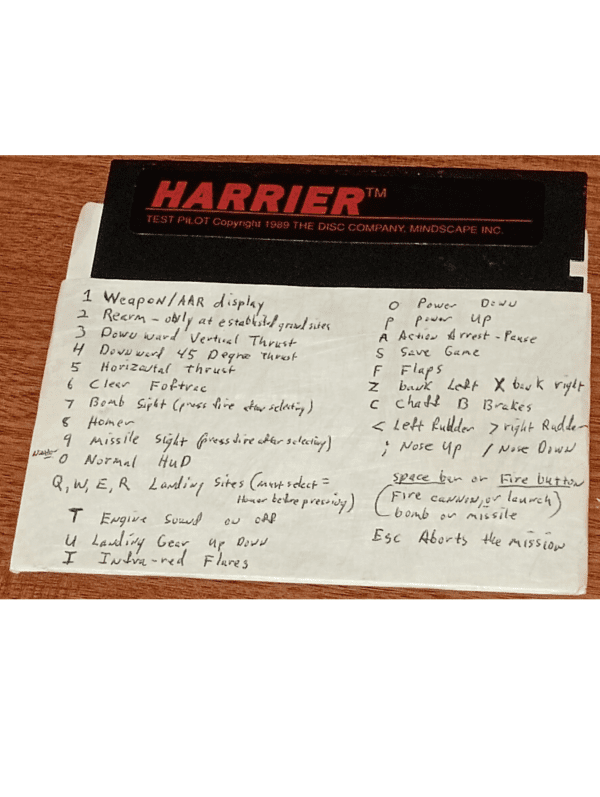 HARRIER™
TEST PILOT Copyright 1989 THE DISC COMPANY, MINDSCAPE INC.
1 Weapon/AAR display
2 Rearm - only at established ground sites
3 Downward Vertical Thrust
4 Downward 45 Degree thrust
5 Horizontal thrust
6 Clear Foftrac
7 Bomb Sight (press fire after selecting)
8 Homer
9 Missile Sight (press fire after selecting)
0 Normal HUD
Q, W, E, R Landing Sites (must select =
Homer before pressing)
T Engine Sound on off
U Landing Gear Up Down
I Infra-red Flares
O Power Down
P Power Up
A Action Arrest - Pause
S Save Game
F Flaps
Z bank Left X bank right
C Chaff B Brakes
< Left Rudder > right Rudder
; Nose Up / Nose Down
space bar or Fire button
(Fire cannon, or launch)
bomb or missile
Esc Aborts the mission